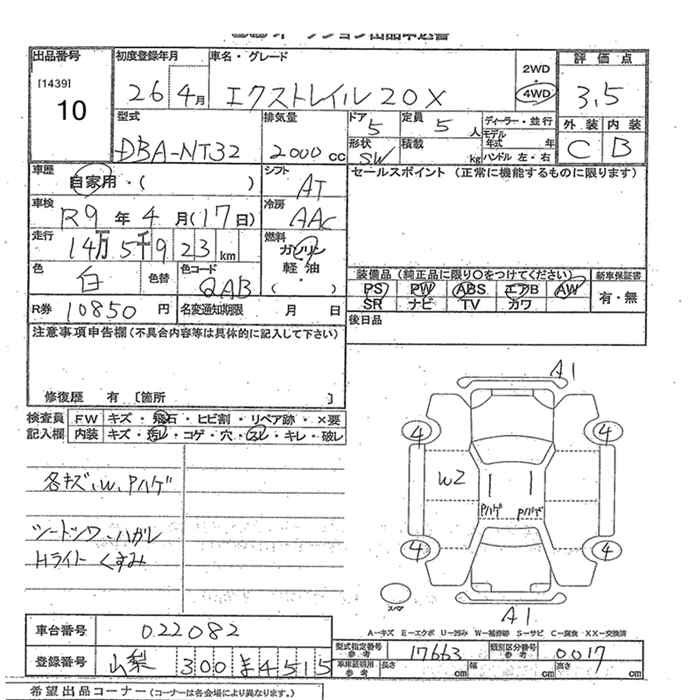 出品番号 初度登録年月 車名・グレード 評価点
[1439]
10
26 4月 エクストレイル20X 2WD 4WD 3.5
型式 排気量 ドア 定員 ディーラー・並行 外装 内装
DBA-NT32 2000cc 5 5人 モデル年式 年 C B
形状 SW 積載 kg ハンドル 左・右
車歴 自家用・( ) シフト AT セールスポイント (正常に機能するものに限ります)
車検 R9年4月(17日) 冷房 AAC
走行 14万5千923km 燃料 ガソリン 軽油 (・)
装備品(純正品に限り○をつけてください) 新車保証書
色 白 色替 色コード QAB
PS PW ABS エアB AW 有・無
SR ナビ TV カワ
R券 10850円 名変通知期限 月 日 後日品
注意事項申告欄(不具合内容等は具体的に記入して下さい)
修復歴 有 〔箇所 〕
検査員 FW キズ・飛石・ヒビ割・リペア跡・×要
記入欄 内装 キズ・汚レ・コゲ・穴・スレ・キレ・破レ
各キズ、W、Pハゲ
シートシワ・ハガレ
Hライト くすみ
A1
4 4
W2
Pハゲ Pハゲ
4 4
スペア
A1
A-キズ E-エクボ U-凹み W-補修跡 S-サビ C-腐食 XX-交換済
車台番号 022082
型式指定番号 参考 17663 類別区分番号 参考 0017
登録番号 山梨 300 ま 4515
車庫証明用 参考 長さ cm 幅 cm 高さ cm
希望出品コーナー(コーナーは各会場により異なります。)